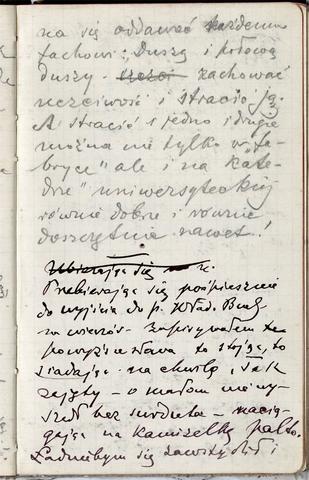 na się oddawać każdemu
fachowi: „Duszą i połową
duszy - zachować
uczciwość i stracić ją.
A stracić i jedno i drugie
można nie tylko w „fa-
bryce" ale i na kate-
drze" uniwersyteckiej
równie dobrze i równie
doszczętnie nawet!
Ubierając się
Przebierając się pośpiesznie
do wyjścia do p. Wład. Buk.
na wieczór - zapisywałem te
powyższe słowa to stojąc, to
siadając na chwilę, i tak
zajęty - o mało m nie wy-
szedł bez surduta - nacią-
gając na kamizelkę palto.
Ładniebym się zawstydził i